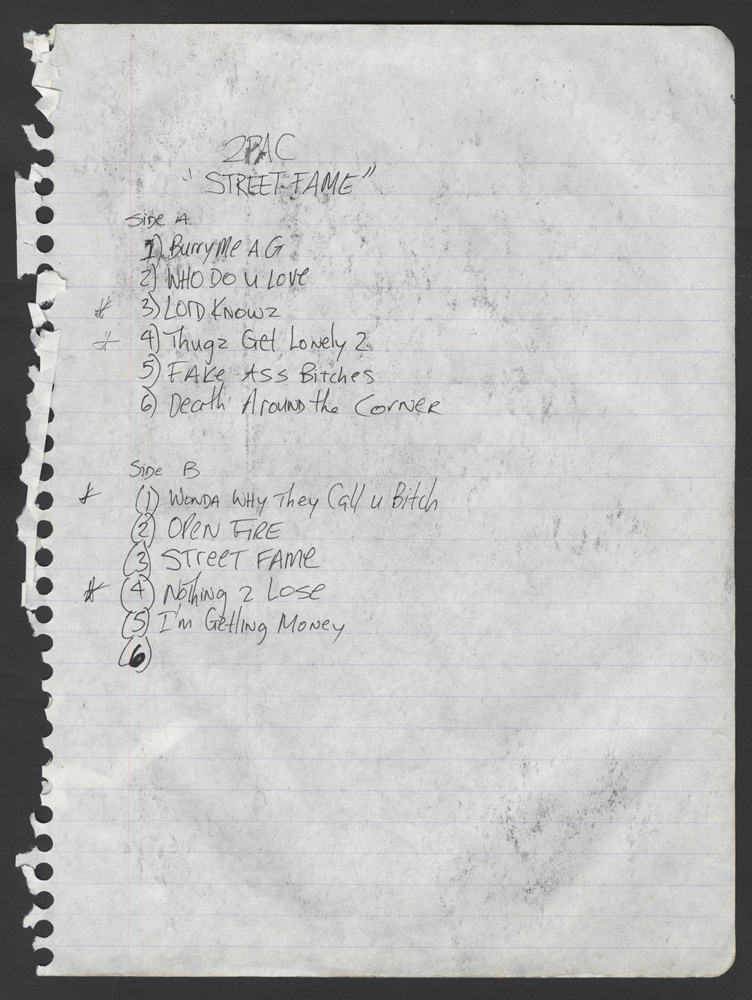 2PAC
"STREET FAME"
Side A
1) Burry Me A G
2) WHO DO U LOVE
* 3) LORD KNOWZ
* 4) Thugz Get Lonely 2
5) FAKE ASS Bitches
6) Death Around the Corner
Side B
* (1) WONDA WHY They Call U Bitch
(2) OPEN FIRE
(3) STREET FAME
* (4) Nothing 2 Lose
(5) I'm Getting Money
(6)